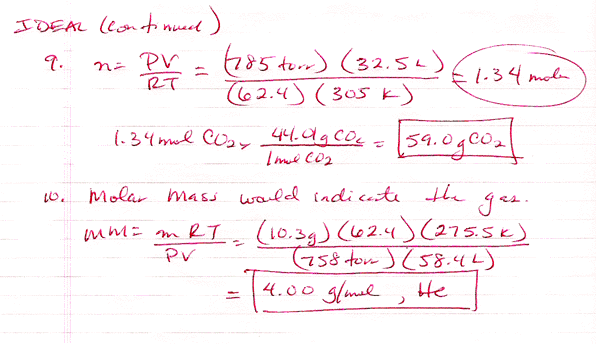 IDEAL (continued)
9. n = PV/RT = (785 torr) (32.5 L) / (62.4) (305 K) = 1.34 moles
1.34 mol CO2 x 44.01g CO2 / 1 mol CO2 = 59.0 g CO2
10. Molar mass would indicate the gas.
MM = mRT/PV = (10.3g) (62.4) (275.5 K) / (758 torr) (58.4 L)
= 4.00 g/mol , He